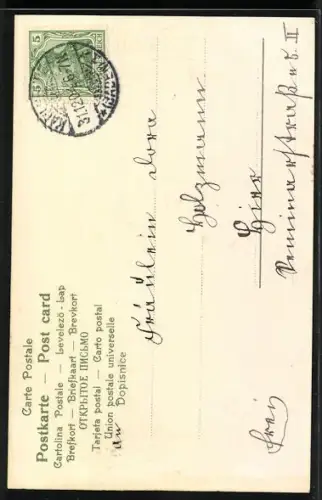 Carte Postale
Postkarte — Post card
Cartolina Postale — Levelező-Lap
Brefkort — Briefkaart — Brevkort
ОТКРЫТОЕ ПИСЬМО
Tarjeta postal — Carto postal
Union postale universelle
Dopisnice
5
5
31.12.0
An
Fräulein Dora
Holzmann
Hier
Seminarstraße II
frei